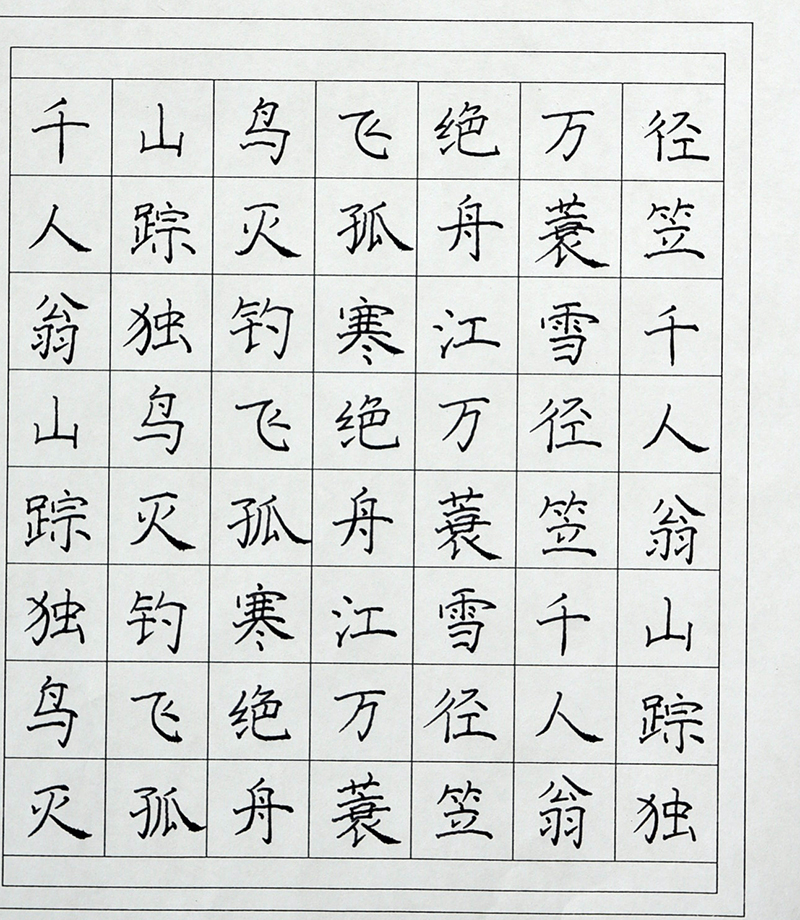 千山鸟飞绝万径
人踪灭孤舟蓑笠
翁独钓寒江雪千
山鸟飞绝万径人
踪灭孤舟蓑笠翁
独钓寒江雪千山
鸟飞绝万径人踪
灭孤舟蓑笠翁独